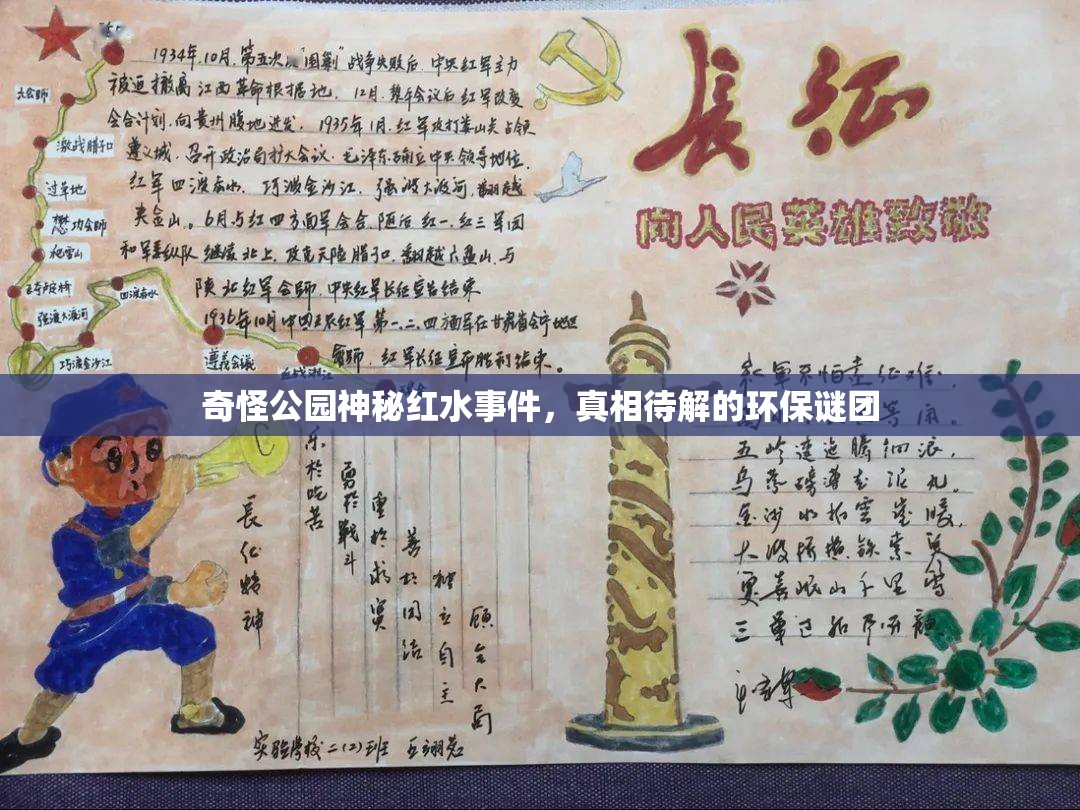 1934年.10月.第五次反"围剿"战争失败后.中央红军主力
被迫撤离江西革命根据地.12月.黎平会议后红军改变
会合计划.向贵州腹地进发.1935年1月.红军攻打娄山关占领
遵义城.召开政治局扩大会议.毛泽东确立中央领导地位.
红军四渡赤水.巧渡金沙江.强渡大渡河.翻越
夹金山。6月与红四方面军会合.随后红一.红三军团
和军委纵队继续北上.攻克天险腊子口.翻越六盘山.与
陕北红军会师.中央红军长征宣告结束
1936年10月中国工农红军第一.二.四方面军在甘肃省会宁地区
会师.红军长征宣布胜利结束。
大会师
激战腊子口
过草地
懋功会师
爬雪山
飞夺泸定桥
强渡大渡河
巧渡金沙江
四渡赤水
遵義会議
血战湘江
长征
向人民英雄致敬
奇怪公园神秘红水事件，真相待解的环保谜团
红军不怕远征难.
五岭逶迤腾细浪,
乌蒙磅礴走泥丸。
金沙水拍云崖暖,
大渡桥横铁索寒
更喜岷山千里雪
三军过后尽开颜
長征精神
乐於吃苦
勇於戰斗
重於求實
善於团结
独立自主
顾全大局
实验学校二(2)班